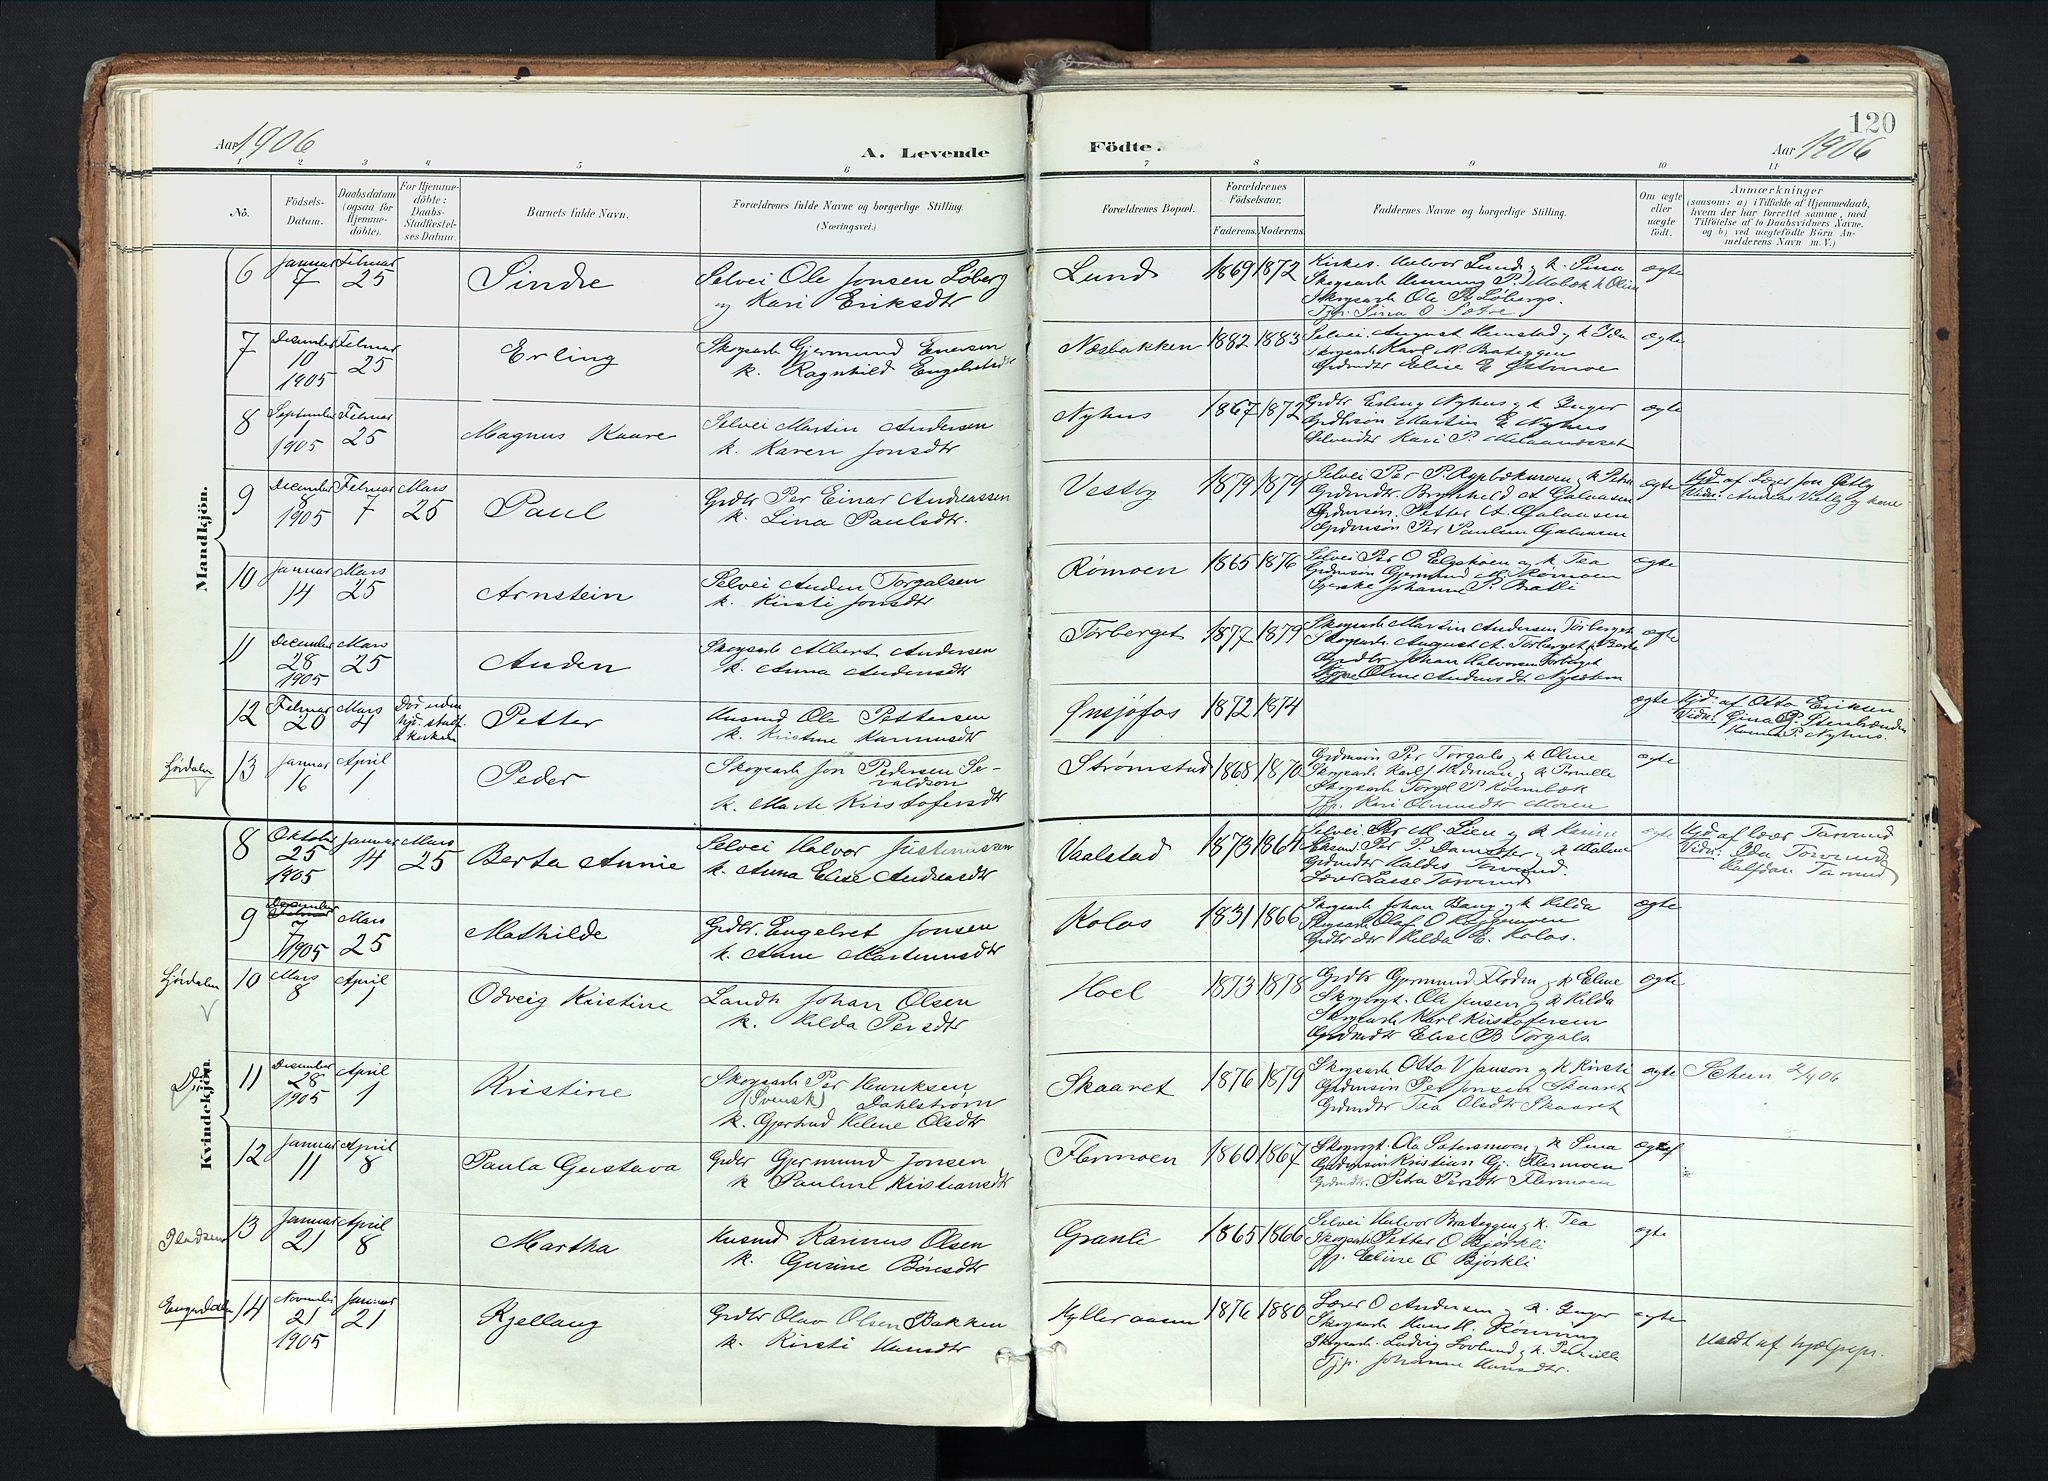 Aar 1906
A. Levende
Födte.
120
Aar 1906
1 2 3 4 5 6 7 8 9 10 11
No.
Födsels-Datum.
Daabsdatum (ogsaa for Hjemmedöbte).
For Hjemmedöbte: Daabs-Stadfæstelses Datum.
Barnets fulde Navn.
Forældrenes fulde Navne og borgerlige Stilling. (Næringsvei.)
Forældrenes Bopæl.
Forældrenes Födselsaar.
Faderens. Moderens.
Faddernes Navne og borgerlige Stilling.
Om ægte eller uægte födt.
Anmærkninger
(saasom: a) i Tilfælde af Hjemmedaab,
hvem der har forrettet samme, med
Tilföielse af to Daabsvidners Navne.
og b) ved uægtefödte Börn Anmelderens Navn m. V.)
Mandkjön.
6 Januar 7 Februar 25 Sindre
Selvei Ole Jonsen Løberg
og Kari Eriksdtr
Lund 1869 1872
Kirkes. Halvor Lund og k. Sina
Skogsarb Ole P. Løbergs.
Tjp. Sina O. Sætre
ægte
7 December 10 1905 Februar 25 Erling
Skogsarb Gjermund Enersen
k. Ragnhild Engebretsdtr
Næsbakken 1882 1883
Selvei August Hemstad og k Ida
Skogsarb Karl M. Brateggen
Grdmdtr Elise E Østmoe
ægte
8 September 1 1905 Februar 25 Magnus Kaare
Selvei Martin Andersen
k. Karen Jonsdtr
Nyhus 1867 1872
Grdbr Erling Nyhus og k Inger
Grdbrsøn Martin E Nyhus
Selveidtr Kari P.
ægte
9 December 8 1905 Februar 7 Mars 25 Paul
Grdbr Per Einar Andreassen
k. Lina Paulsdtr.
Vestby 1879 1879
Selvei Per P. Rypbækmoen k Petra
Grdmdtr. Brynhild A Galaasen
Grdmnsøn. Petter A. Galaasen
Grdmnsøn Per Paulsen Galaasen
ægte
Hjd. af Lærer Jon Østby
Vidn: Andreas Vestby og kone
10 Januar 14 Mars 25 Arnstein
Selvei Anden Torgalsen
k. Kirsti Jonsdtr
Rømoen 1865 1876
Selvei Per O Elgshoen og k Tea
Grdmnsøn Gjermund M. Rømoen
Syerske Johanne P. Bratli
ægte
11 December 28 1905 Mars 25 Anden
Skogsarb Albert Andersen
k. Anna Andersdtr
Torberget 1877 1879
Skogsarb Martin Andersen Torberget
Skogsarb August A. Torberget
Grdbr Johan Halvorsen Torberget
Oline Andersdtr. Nysæten
ægte
12 Februar 20 Mars 4 Petter
Husmd Ole Pettersen
k. Kristine Rasmusdtr
Ønsjøfos 1872 1874
ægte
Hjd. af Otto Eriksen
Vidn: Gina P. Stenbænden
P. Nyhus.
Ljørdalen
13 Januar 16 April 1 Peder
Skogsarb Jon Pedersen Sevaldson
k. Marte Kristofersdtr
Strømstad 1868 1870
Grdmnsøn Per Torgals og k Oline
Skogsarb Karl J. Hedman og k Pernille
Tjp. Kari Olmundsdtr Moren
ægte
Kvindekjön.
8 Oktober 25 1905 Januar 14 Mars 25 Berta Annie
Selvei Halvor Justenussen
k. Anna Elise Andreasdtr
Vaalstad 1873 1864
Selvei Per M. Lien og k Karine
Grdmdtr Haldis Tørvund.
Lærer Lasse Tørvund
ægte
Hjd. af lærer Tørvund
Vidn: Ida Tørvund
Halfdan Tørvund
9 December 7 1905 Mars 25 Mathilde
Grdbr. Engebret Jonsen
k. Anne Martinusdtr
Kolos 1831 1866
Skogsarb Johan Bang og k Hilda
Skogsarb Olaf O Kæggemoen
Grdbr dtr Hilda E. Kolos.
ægte
Ljørdalen
10 Mars 8 April 1 Odveig Kristine
Landh Johan Olsen
k. Hilda Persdtr
Hoel 1873 1878
Grdbr Gjermund Floden og k Eline
Skogvogt. Ole Jensen og k Hilda
Skogsarb Karl Kristofersen
Grdmdtr Elise B Torgals.
ægte
11 December 28 1905 April 1 Kristine
Skogsarb Per Henriksen
(Svensk) Dahlstrøm
k. Gjertrud Helene Olsdtr
Skaaret 1876 1879
Skogsarb Otto V Jonson og k Kirste
Grdmnsøn Per Jonsen Skaaret
Grdmdtr Tea Olsdtr Skaaret
ægte
12 Januar 11 April 8 Paula Gustava
Grdbr Gjermund Jonsen
k Pauline Kristiansdtr
Flermoen 1860 1867
Skogvogt. Ola Sætersmoen og k Sina
Grdmnsøn Kristian Gj. Flermoen
Grdmdtr. Petra Persdtr Flermoen
ægte
13 Januar 21 April 8 Martha
Husmd Karinus Olsen
k. Gurine Børesdtr
Granli 1865 1866
Selvei Halvor Brateggen og k. Tea
Skogsarb Petter O Bjørkli
Tjp. Eline O Bjørkli
ægte
Engerdalen
14 November 21 1905 Januar 21 Kjellaug
Grdbr Olav Olsen Bakken
k. Kirsti Hansdtr
Hylleraasen 1876 1880
Lærer O Andersen og k. Inger
Skogsarb Hans H. Rønning
Skogsarb. Ludvig Lovlund og k. Pernille
Tjp. Johanne Hansdtr.
ægte
Meldt af hjælpepr.